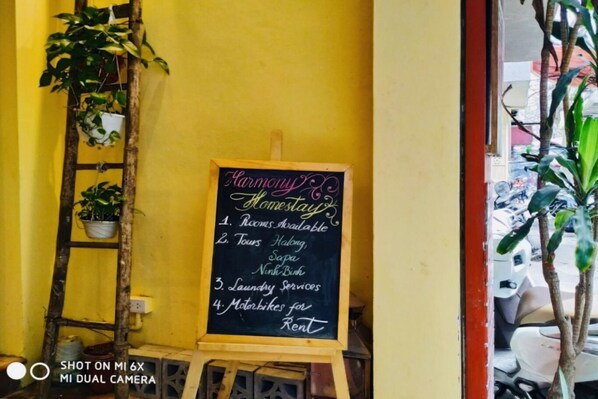 Harmony
Homestay
1. Rooms Available
2. Tours Halong,
Sapa
Ninh Binh
3. Laundry Services
4. Motorbikes for
Rent
SHOT ON MI 6X
MI DUAL CAMERA